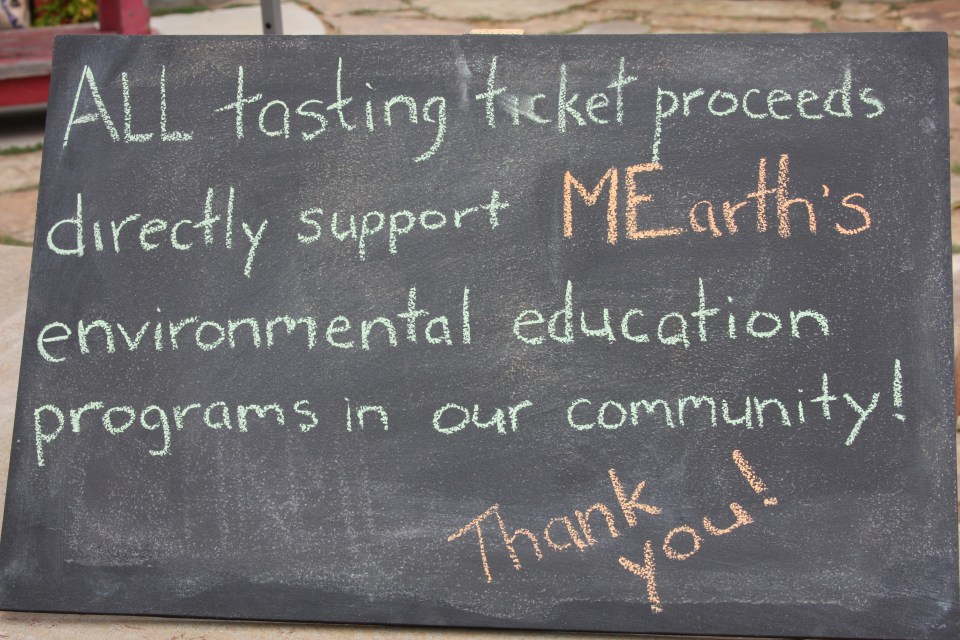 ALL tasting ticket proceeds
directly support MEarth's
environmental education
programs in our community!
Thank
you!